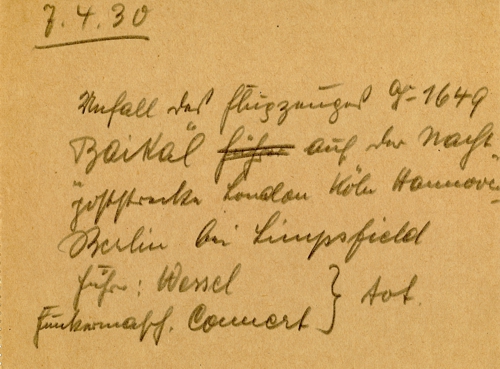 7.4.30
Unfall des Flugzeuges D-1649
Baikal führer auf der Nacht
poststrecke London Köln Hannover
Berlin bei Limpsfield
Führ: Wessel } tot.
Funkermasch. Connert